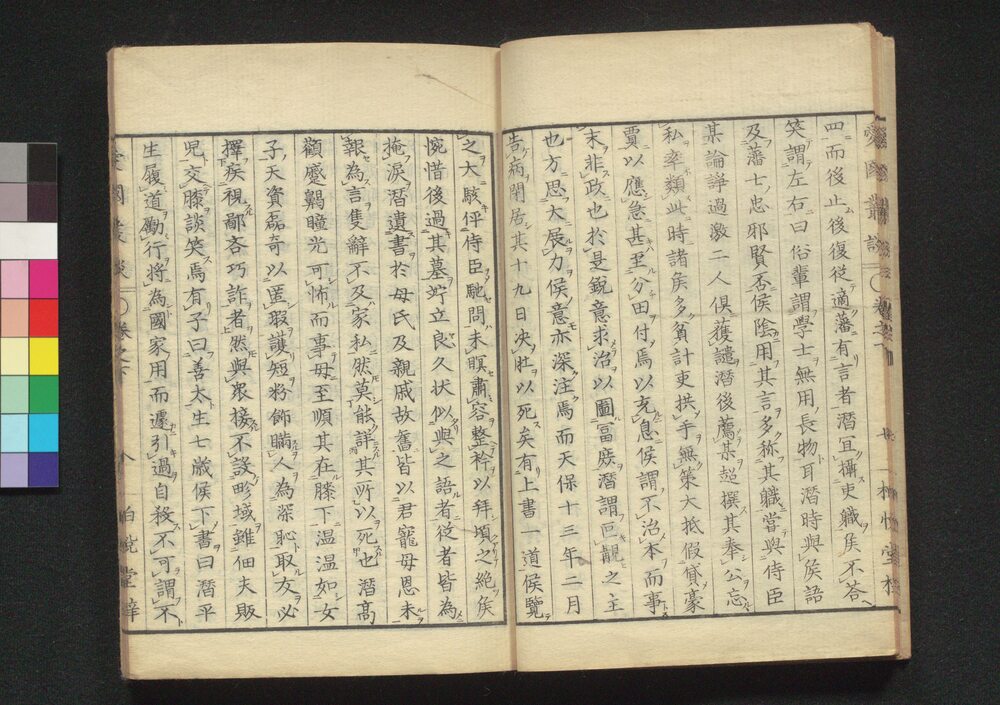 四而後止後復從適藩有言者潛宜攝吏職矦不答
笑謂左右曰俗輩謂學士無用長物耳潛時與矦語
及藩士忠邪賢否侯陰用其言多稱其職當與侍臣
某論諍過激二人俱獲譴潛後薦某超撰其奉公忘
私率類此時諸矦多貧計吏拱手無策大抵假貸豪
賈以應急甚至分田付焉以充息侯謂不治本而事
末非政也於是鋭意求治以圖冨庶潛謂曠之主
也方思大展力侯意亦深注焉而天保十三年二月
告病閉居其十九日決肚以死矣有上書一道侯覽
之大駭伻侍臣馳問未瞑肅容整衿以拜頃之絶矦
惋惜後過其墓竚立良久状似與之語者従者皆為
掩涙潛遺書於母氏及親戚故舊皆以君寵母恩未
報為言隻辭不及家私然莫能詳其所以死也潛髙
顴蹙鼻瞳光可怖而事母至順其在膝下温温如女
子天資磊奇以匿瑕護短粉飾瞞人為深恥取友必
擇疾視鄙吝巧詐者然與衆接不設畛域雖佃夫販
児交膝談笑焉有子曰善太生七歳侯下書曰潛平
生履道勵行将為國家用而遽引過自殺不可謂不
愛國叢談
卷之下
八
柏悅堂梓